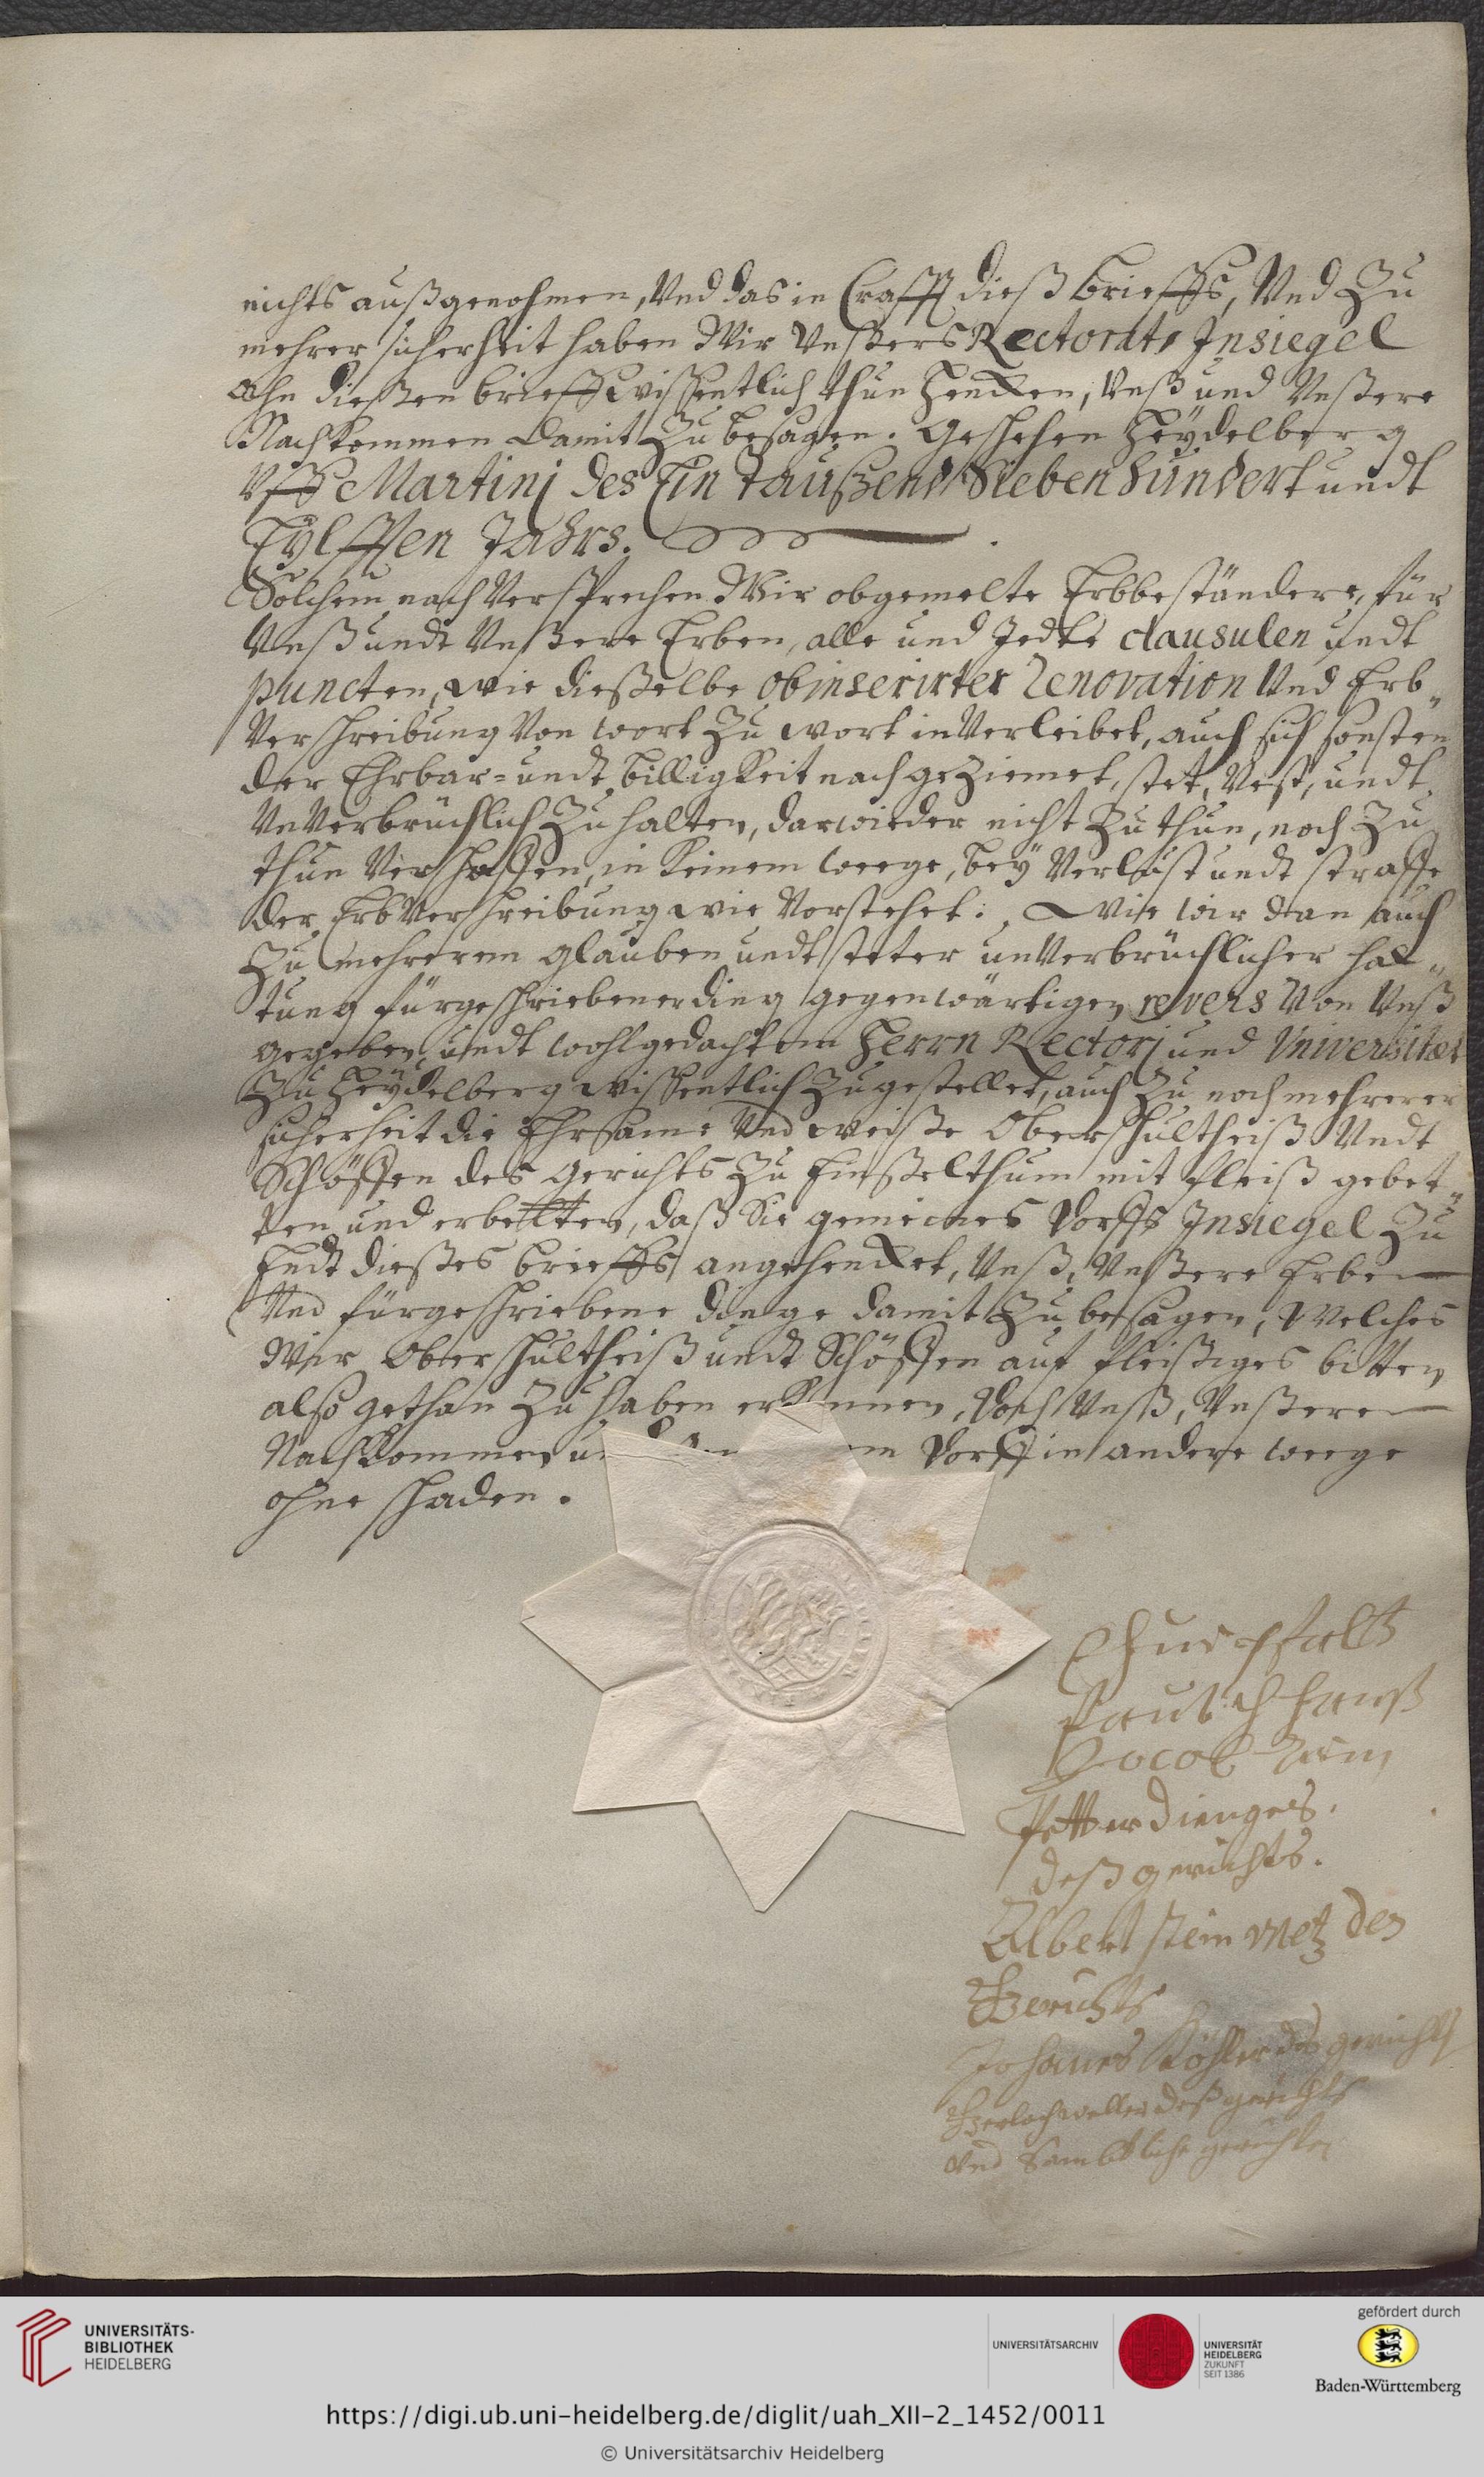 nichts außgenohmen, Und das in Crafft dieß brieffs, Und Zu
mehrer sicherheit haben Wir Unßers Rectorats Insiegel
ahn dießen brieff wißentlich thun hencken, Unß und Unßere
Nachkommen damit Zu besagen. Geschehen Heÿdelberg
Uff Martinj des Ein Taußend Sieben hundert undt
Eÿlfften Jahrs.
Solchem nach Versprechen Wir obgemelte Erbbeständere, für
Unß undt Unßere Erben, alle und Jedte clausulen undt
puncten, wie dießelbe obinserirter Renovation Und Erb„
Verschreibung Von wort Zu wort inVerleibet, auch sich sonsten
der Ehrbar= undt billigkeit nach geziemet, stet, Vest, undt
UnVerbrüchlich Zu halten, darwieder nicht Zu thun, noch Zu
thun Verschaffen, in keinem weege, beÿ Verlust undt straffe
der ErbVerschreibung wie Vorstehet. Wie wir dan auch
Zu mehrerem glauben undt stetter unVerbrüchlicher hal„
tung fürgeschriebener ding gegenwärtigen revers Von Unß
gegeben, undt wohlgedachtem Herrn Rectorj und Universitæt
Zu Heÿdelberg wißentlich Zugestellet, auch Zu noch mehrerer
sicherheit die Ehrsame Und weiße Oberschultheiß Undt
Schöffen des gerichts Zu Einßelthum mit fleiß gebet„
ten und erbetten, daß Sie gemeines Dorffs Insiegel Zu
Endt dießes brieffs angehencket, Unß, Unßere Erben
Und fürgeschriebene dinge damit Zu besagen, Welches
Wir Oberschultheiß undt Schöffen auf fleißiges bitten
also gethan Zu haben erkennen, doch Unß, Unßere
Nachkommen Dorff in andere weege
ohne schaden.
Churpfaltz
Hanß
Petter Dinges
deß gerichts.
Albert stein Metz des
Gerichts
Johannes Köhler des gerichts
deß gerichts
Und Sambtliche gerichten
UNIVERSITÄTS-
BIBLIOTHEK
HEIDELBERG
UNIVERSITÄTSARCHIV
UNIVERSITÄT
HEIDELBERG
ZUKUNFT
SEIT 1386
gefördert durch
Baden-Württemberg
https://digi.ub.uni-heidelberg.de/diglit/uah_XII-2_1452/0011
© Universitätsarchiv Heidelberg